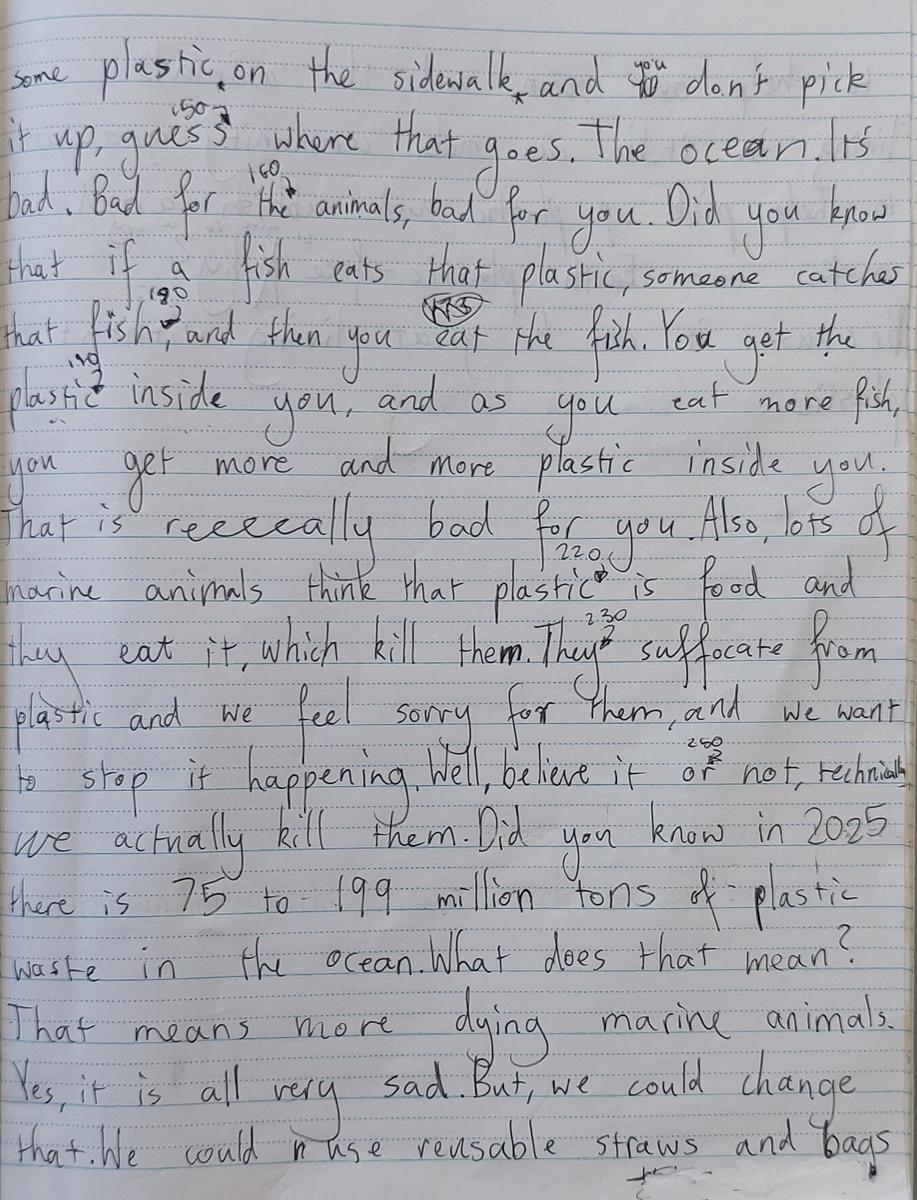 some plastic on the sidewalk, and you don't pick
150
it up, guess where that goes. The ocean. It's
160
bad. Bad for the animals, bad for you. Did you know
that if a fish eats that plastic, someone catches
180
that fish, and then you eat the fish. You get the
190
plastic inside you, and as you eat more fish,
you get more and more plastic inside you.
That is reeeeally bad for you. Also, lots of
220
marine animals think that plastic is food and
230
they eat it, which kill them. They suffocate from
plastic and we feel sorry for them, and we want
250
to stop it happening. Well, believe it or not, technically
we actually kill them. Did you know in 2025
there is 75 to 199 million tons of plastic
waste in the ocean. What does that mean?
That means more dying marine animals.
Yes, it is all very sad. But, we could change
that. We could use reusable straws and bags